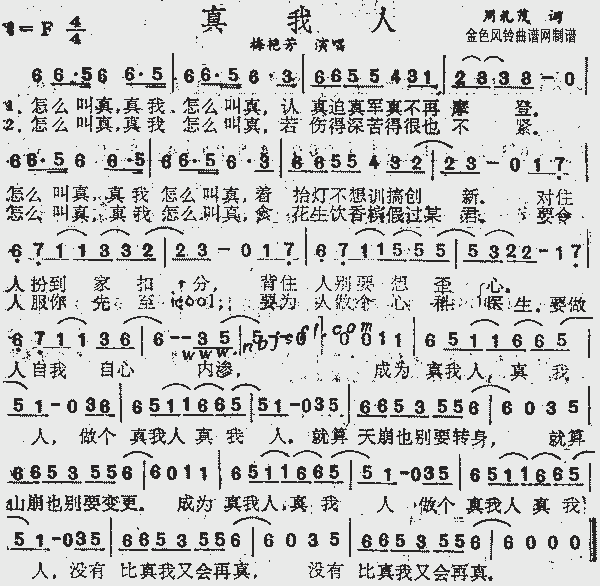 真 我 人
1=F 4/4
梅艳芳 演唱
周礼茂 调
金色风铃曲谱网制谱
6 6·5 6 6·5 | 6 6·5 6 6·3 | 6 6 5 5 4 3 1 | 2 3 3 3 - 0 |
1. 怎么叫真,真我 怎么叫真,认 真追真军真不再 摩 登。
2. 怎么叫真,真我 怎么叫真,若 伤得深苦得很也 不 紧。
6 6·5 6 6·5 | 6 6·5 6 6·3 | 6 6 5 5 4 3 2 | 2 3 - 0 1 7 |
怎么叫真,真我 怎么叫真,着 抬灯不想训搞创 新。 对住
怎么叫真,真我 怎么叫真,食 花生饮香槟假过某 君。 要令
6 7 1 1 3 3 3 2 | 2 3 - 0 1 7 | 6 7 1 1 5 5 5 | 5 3 2 2 - 1 7 |
人 扮到 家 扣 分, 背住 人别要 想 歪 心。
人 服你 先 至 cool; 要为 人做个 心 科 医 生.要做
6 7 1 1 3 6 | 6 - - 3 5 | 5 - - 0 | 0 0 1 1 | 6 5 1 1 6 6 5 |
人 自我 自心 内渗, 成为 真我人,真 我
5 1 - 0 3 6 | 6 5 1 1 6 6 5 | 5 1 - 0 3 5 | 6 6 5 3 5 5 6 | 6 0 3 5 |
人, 做个 真我人 真 我 人. 就算 天崩也别要转身, 就算
6 6 5 3 5 5 6 | 6 0 1 1 | 6 5 1 1 6 6 5 | 5 1 - 0 3 5 | 6 5 1 1 6 6 5 |
山崩也别要变更. 成为 真我人,真 我 人 做个 真我人 真 我
5 1 - 0 3 5 | 6 6 5 3 5 5 6 | 6 0 3 5 | 6 6 5 3 5 5 6 | 6 0 0 0 ‖
人, 没有 比真我又会再真, 没有 比真我又会再真.